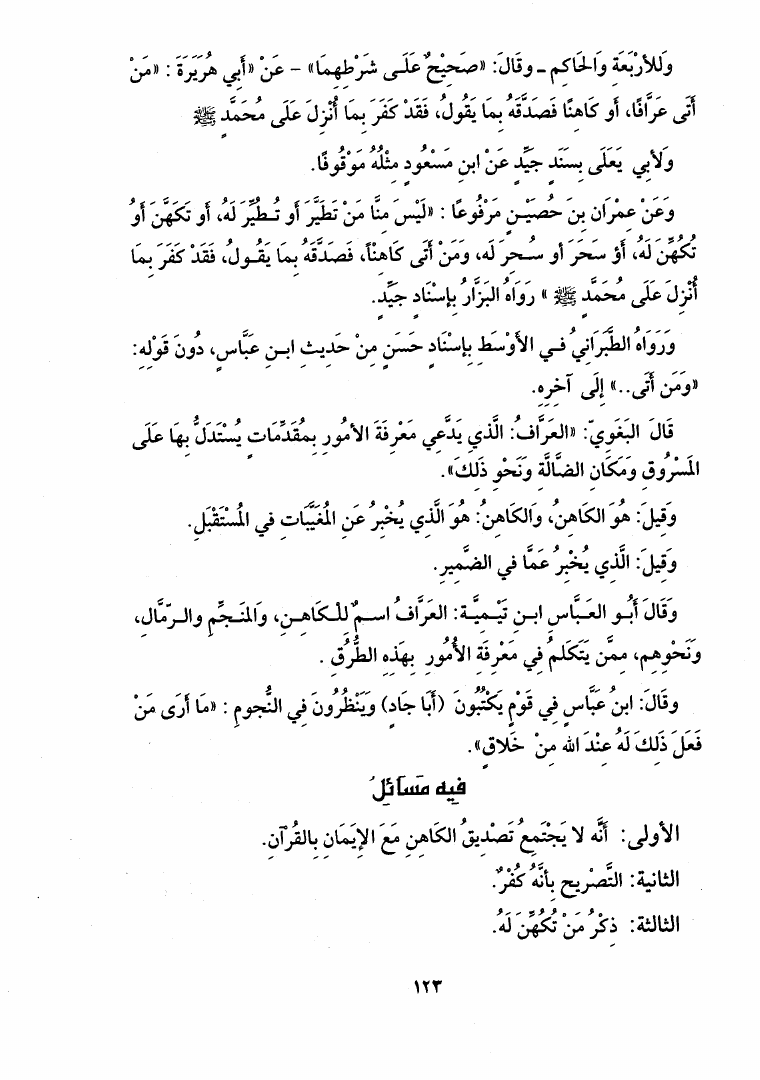 وَللأرْبَعَةِ وَالحَاكِم - وقَالَ: «صَحِيْحٌ عَلَى شَرْطِهِمَا» - عَنْ «أَبِي هُرَيَرَةَ: «مَنْ
أَتَى عَرَّافًا، أَو كَاهِنًا فَصَدَّقَهُ بِمَا يَقُولُ، فَقَدْ كَفَرَ بِمَا أُنْزِلَ عَلَى مُحَمَّدٍ ﷺ
وَلأبِي يَعَلَى بِسَنَدٍ جَيِّدٍ عَنْ ابنِ مَسْعُودٍ مثْلُهُ مَوْقُوفًا.
وَعَنْ عِمْرَان بنَ حُصَيْنٍ مَرْفُوعًا: «لَيْسَ منَّا مَنْ تَطَيَّرَ أَو تُطُيِّرَ لَهُ، أَو تَكَهَّنَ أَو
تُكُهِّنَ لَهُ، أَوْ سَحَرَ أو سُحِرَ لَه، وَمَنْ أَتَى كَاهِناً، فَصَدَّقَهُ بِمَا يَقُولُ، فَقَدْ كَفَرَ بِمَا
أُنْزِلَ عَلَى مُحَمَّدٍ ﷺ» رَوَاهُ البَزَّارُ بإسْنَادٍ جَيِّدٍ.
وَرَوَاهُ الطَّبَرَانِيُ فِي الأَوْسَطِ بِإِسْنَادٍ حَسَنٍ مِنْ حَدِيثِ ابنِ عَبَّاسٍ، دُونَ قَوْلِهِ:
«وَمَن أَتَى..» إلَى آخِرِهِ.
قَالَ البَغَوِيّ: «العَرَّافُ: الَّذِي يَدَّعِي مَعْرِفَةَ الأمُورِ بِمُقَدِّمَاتٍ يُسْتَدَلُّ بِهَا عَلَى
المَسْرُوقِ وَمَكَانِ الضَّالَّةِ وَنَحْوِ ذَلِكَ».
وَقِيلَ: هُوَ الكَاهِنُ، وَالكَاهِنُ: هُوَ الَّذِي يُخْبِرُ عَنِ المُغَيَّبَاتِ فِي المُسْتَقْبَلِ.
وَقِيلَ: الَّذِي يُخْبِرُ عَمَّا فِي الضَّمِيرِ.
وَقَالَ أَبُو العَبَّاسِ ابنِ تَيْمِيَّة: العَرَّافُ اسمٌ لِلْكَاهِنِ، وَالمنَجِّمِ والرّمَّالِ،
وَنَحْوِهِم، مِمَّن يَتَكَلمُ فِي مَعْرِفَةِ الأُمُورِ بِهَذِهِ الطُّرُقِ.
وقَالَ: ابنُ عَبَّاسٍ فِي قَوْمٍ يَكْتُبُونَ (أَبَا جَادٍ) وَيَنْظُرُونَ فِي النُّجومِ: «مَا أَرَى مَنْ
فَعَلَ ذَلِكَ لَهُ عِنْدَ الله مِنْ خَلاقٍ».
فيه مسائلُ
الأولى: أَنَّه لا يَجْتَمِعُ تَصْدِيقُ الكَاهِنِ مَعَ الإيَمانِ بِالقُرآنِ.
الثانية: التَّصْرِيح بِأنَّهُ كُفْرٌ.
الثالثة: ذِكْرُ مَنْ تُكُهِّنَ لَهُ.
١٢٣